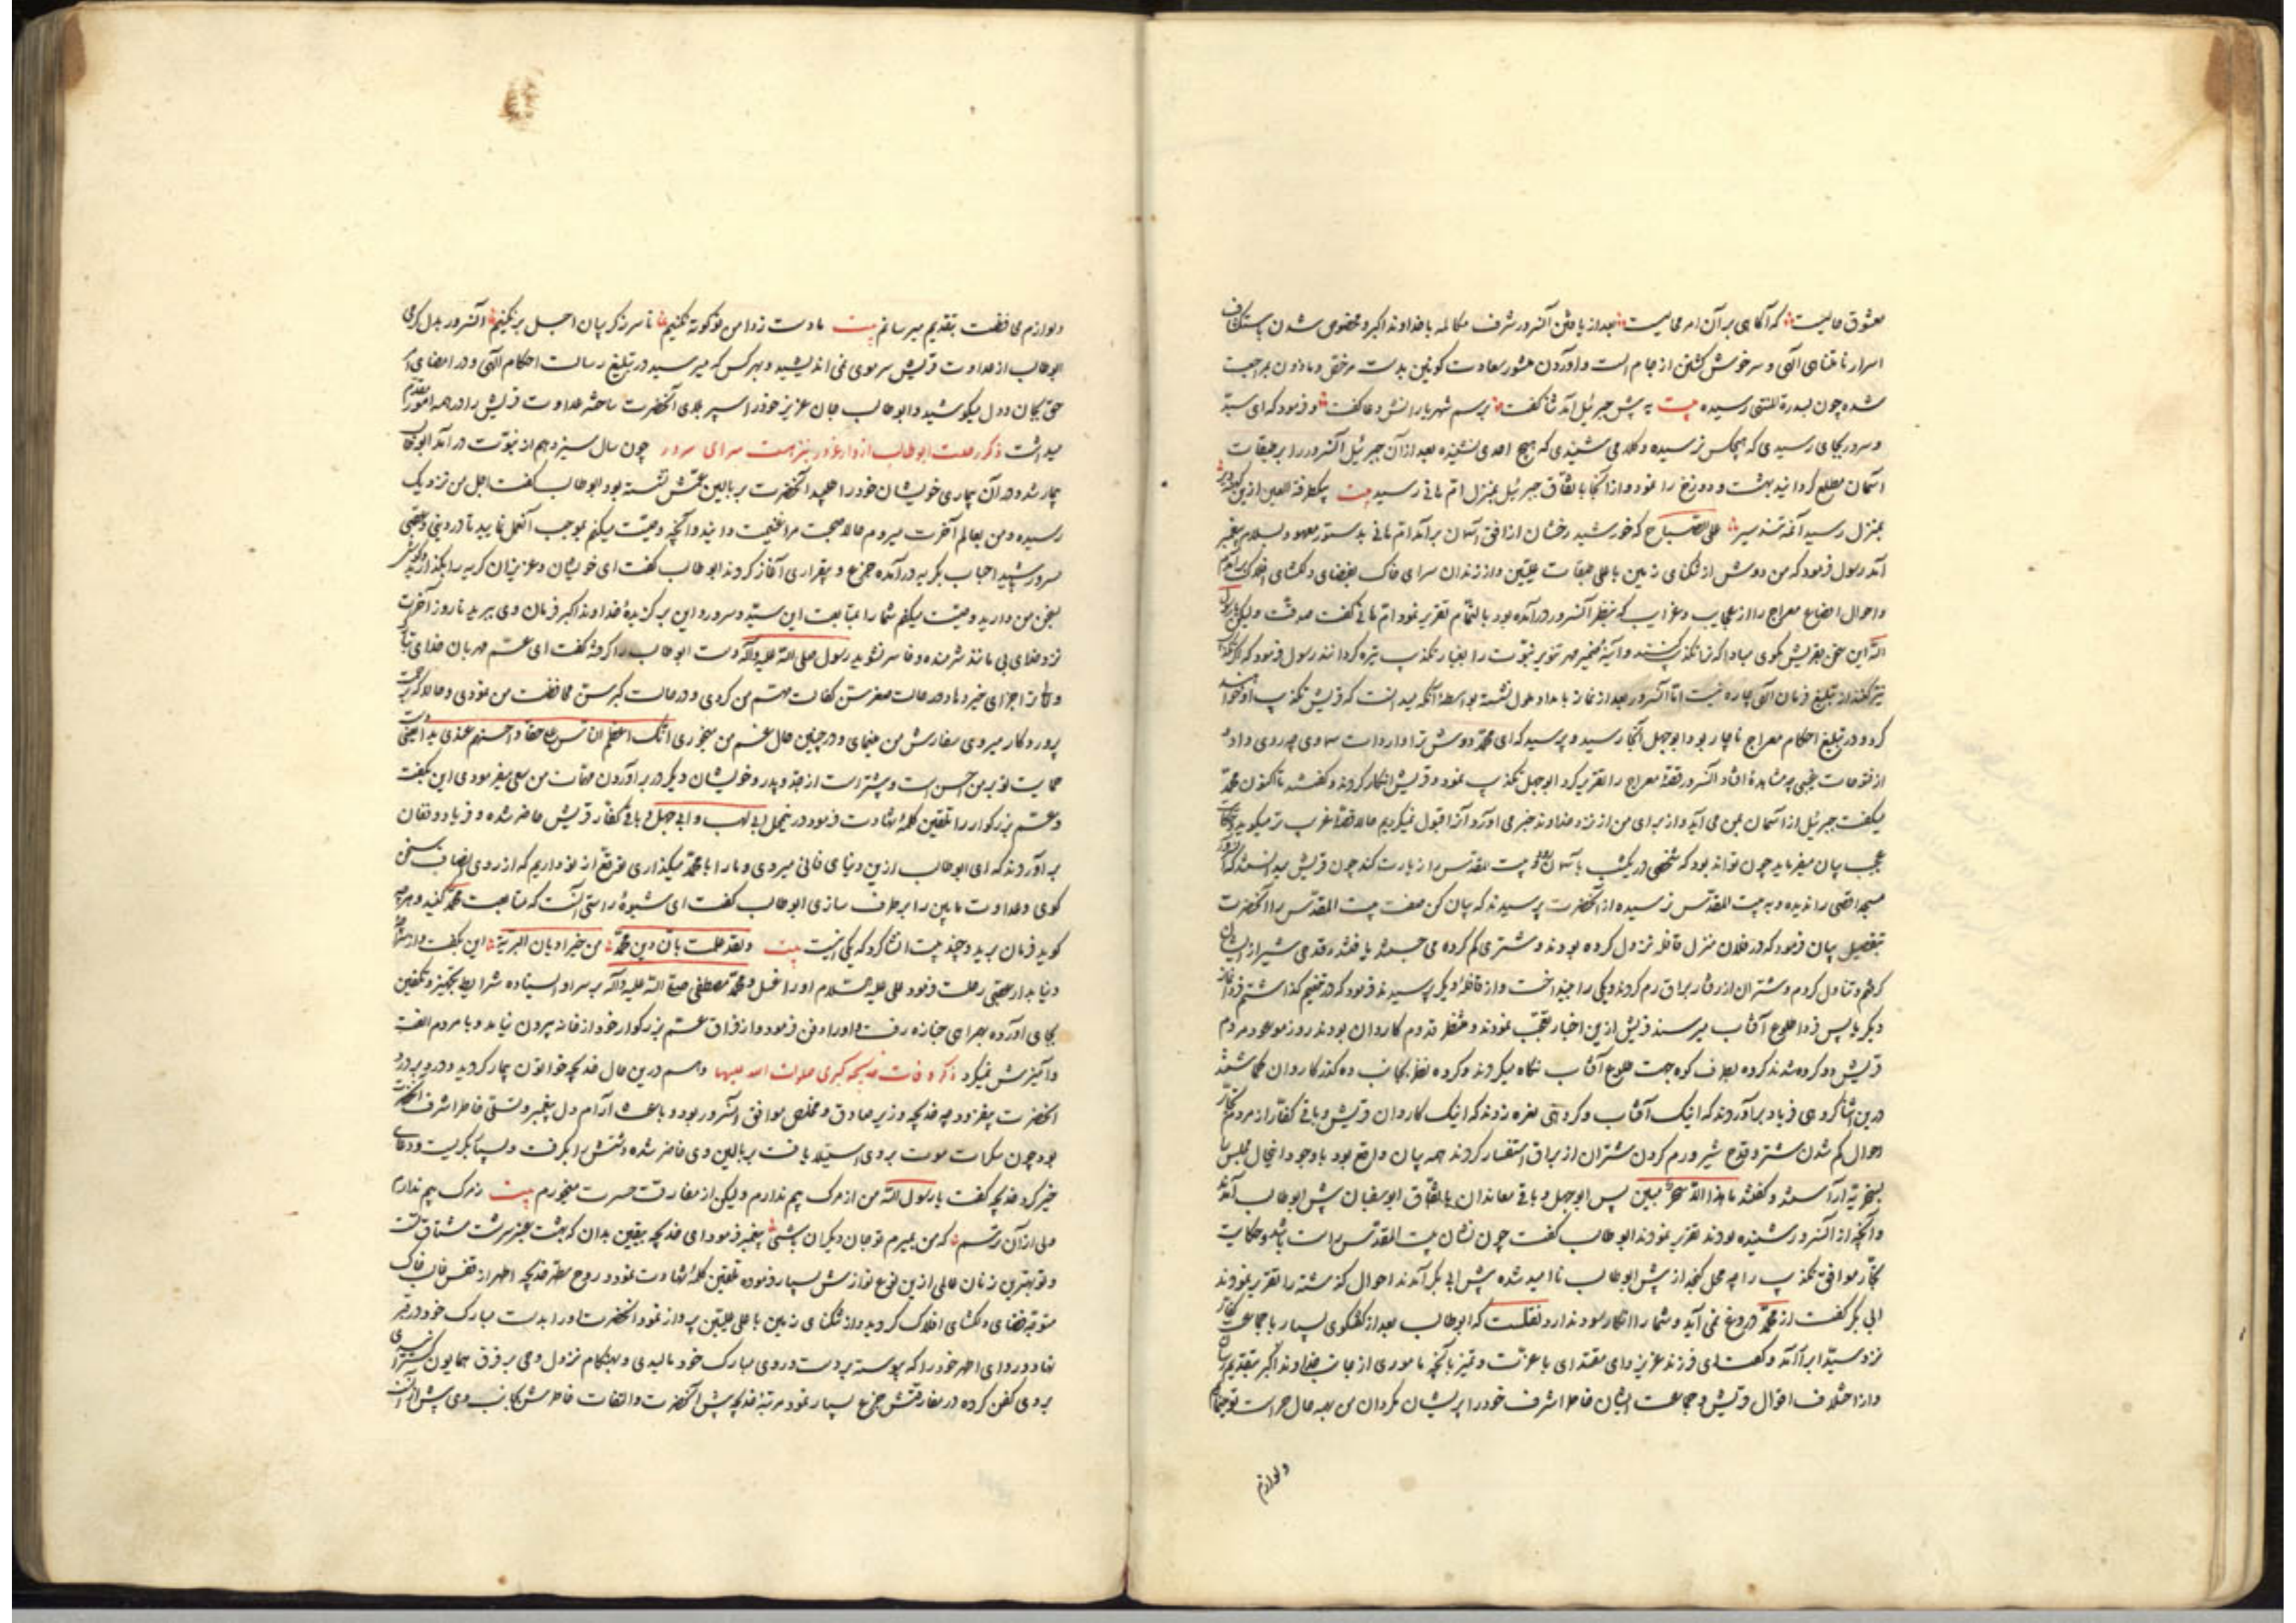 معشوق حالیست که آگاهی بر آن امر محالیست بعد از یافتن آنسرور شرف مکالمه با خداوند اکبر و مخصوص شدن
اسرار نامتناهی الهی و سرخوش گشتن از جام الست و آوردن منشور سعادت کونین بدست مرخص و ماذون بمراجعت
شده چون بسدرة المنتهی رسیده بیت به پیش جبرئیل آمد ثنا گفت برسم شهریارانش دعا گفت و فرمود که ای سید
و سرور بجای رسیدی که هیچکس نرسیده و کلامی شنیدی که هیچ احدی نشنیده بعد از آن جبرئیل آنسرور را بر طبقات
آسمان مطلع گردانید بهشت و دوزخ را نمود و از آنجا باتفاق جبرئیل بمنزل ام هانی رسید بیت بیکطرفة العین ازین
بمنزل رسید آنمه تندسیر علی الصباح که خورشید رخشان از افق آسمان برآمد ام هانی بدستور معهود بسلام پیغمبر
آمد رسول فرمود که من دوش از تنکنای زمین باعلی طبقات علیین و از زندان سرای خاک بفضای دلگشای افلاک
و احوال اوضاع معراج را از عجایب و غرایب که بنظر آنسرور درآمده بود بالتمام تقریر نمود ام هانی گفت صدقت ولیکن یا رسول
الله این سخن بقریش مگوی مبادا که ترا تکذیب کنند و آینه ضمیر مهر تنویر نبوت را بغبار تکذیب تیره گردانند رسول فرمود که
نیز کنند از تبلیغ فرمان الهی چاره نیست اما آنسرور بعد از نماز بامداد ملول نشسته بواسطه آنکه میدانست که قریش تکذیب او خواهند
کرد و در تبلیغ احکام معراج ناچار بود ابوجهل آنجا رسید و پرسید که ای محمد دوش ترا واردات سماوی چه روی داد
از فتوحات غیبی چه مشاهده افتاد آنسرور قصه معراج را تقریر کرد ابوجهل تکذیب نمود و قریش انکار کردند و گفتند تا اکنون محمد
میگفت جبرئیل از آسمان بمن می آید و از برای من از نزد خداوند خبر می آورد و آنرا قبول نمیکردیم حالا قصه غریب تر میگوید
عجب بیان میفرماید چون تواند بود که شخصی در یکشب بآسمان رود و بیت المقدس را زیارت کند چون قریش میدانستند که
مسجد اقصی را ندیده و به بیت المقدس نرسیده از آنحضرت پرسیدند که بیان کن صفت بیت المقدس را آنحضرت
بتفصیل بیان فرمود که در فلان منزل قافله نزول کرده بودند و شتری گم کرده می جستند یافتند و قدحی شیر از ایشان
گرفتم و تناول کردم و شتران از رفتار براق رم کردند و یکی را بینداخت و از قافله دیگر پرسیدند فرمود که در تنعیم گذاشتم فردا
دیگر باپس فردا طلوع آفتاب میرسند قریش ازین اخبار تعجب نمودند و منتظر قدوم کاروان بودند روز موعود مردم
قریش دو گروه شدند گروه بطرف کوه جهت طلوع آفتاب نگاه میکردند و گروه نظر بجانب ده گذر کاروان گماشتند
درین اثنا گروهی فریاد برآوردند که اینک آفتاب و گروهی نعره زدند که اینک کاروان قریش و باقی کفار از مردم
احوال گم شدن شتر و قدح شیر و رم کردن شتران از براق استفسار کردند همه بیان واقع بود باوجود اینحال مجلس
بسخریه آراستند و گفتند ما هذا الا سحر مبین پس ابوجهل و باقی معاندان باتفاق ابوسفیان پیش ابوطالب آمدند
و آنچه از آنسرور شنیده بودند تقریر نمودند ابوطالب گفت چون نشان بیت المقدس راست باشد حکایت
موافق تکذیب را چه محل کنجد از پیش ابوطالب ناامید شده پیش ابی بکر آمدند احوال گذشته را تقریر نمودند
ابی بکر گفت از محمد دروغ نمی آید و شما را انکار سود ندارد نقلست که ابوطالب بعد از گفتگوی بسیار با جماعت کفار
نزد سید ابرار آمد و گفت ای فرزند عزیز و ای مقتدای با عزت و تمیز بآنچه ماموری از جانب خداوند اکبر بتقدیم
و از اختلاف اقوال قریش و جماعت ایشان خاطر اشرف خود را پریشان مگردان من بهمه حال حراست
ولوازم
ولوازم محافظت بتقدیم میرسانم بیت ما دست زدامن تو کوته نکنیم تا سر ز گریبان اجل بر نکنیم آنسرور بدل گرمی
ابوطالب از عداوت قریش سر موی نمی اندیشید و بهر کس که میرسید در تبلیغ رسالت احکام الهی و در امضای
حق بجان و دل میکوشید و ابوطالب جان عزیز خود را سپر بلای آنحضرت ساخته عداوت قریش را در همه امور
میداشت ذکر رحلت ابوطالب از دار غرور بنزهت سرای سرور چون سال سیزدهم از نبوت درآمد ابوطالب
بیمار شد و در آن بیماری خویشان خود را طلبید آنحضرت بر بالین عمش نشسته بود ابوطالب گفت اجل من نزدیک
رسیده و من بعالم آخرت میروم حالا صحبت مرا غنیمت دانید و آنچه وصیت میکنم بموجب آن عمل نمایید تا در دینی و عقبی
سرور شید احباب بگریه درآمده جزع و بیقراری آغاز کردند ابوطالب گفت ای خویشان و عزیزان گریه را بگذارید
بسخن من دارید وصیت میکنم شما را بمتابعت این سید و سرور و این برگزیده خداوند اکبر فرمان وی برید تا روز آخرت
نزد خدای بی مانند شرمنده و خاسر نشوید رسول صلی الله علیه وآله دست ابوطالب را گرفته گفت ای عم مهربان خدای
جزای خیر دهاد در حالت صغر سن کفالت مهم من کردی و در حالت کبر سن محافظت من نمودی و حالا که
پروردگار میروی سفارش من مینمای و در چنین حال غم من میخوری انک اعظم الناس علی حقا و احسنهم عندی یدا یعنی
حمایت تو بر من احسن است و بیشتر است از جد و پدر و خویشان دیگر در برآوردن مهمات من سعی میفرمودی این بگفت
و عم بزرگوار را تلقین کلمه شهادت فرمود در اینحال ابی لهب و ابی جهل و باقی کفار قریش حاضر شده و فریاد و فغان
برآوردند که ای ابوطالب ازین دنیای فانی میروی و ما را با محمد میگذاری توقع از تو داریم که از روی انصاف سخن
گوی و عداوت مابین را برطرف سازی ابوطالب گفت ای شیوه راستی آنست که متابعت محمد کنید و هرچه
گوید فرمان برید و چند بیت انشا کرد که یکی اینست بیت ولقد علمت بان دین محمد من خیر ادیان البریة این بگفت و از
دنیا بدار عقبی رحلت فرمود علی علیه السلام او را غسل و محمد مصطفی صلی الله علیه وآله بر سر او ایستاده شرایط تجهیز و تکفین
بجای آورده بهمراهی جنازه رفت و او را دفن فرمود و از فراق عم بزرگوار خود از خانه بیرون نیامد و با مردم الفت
و آمیزش نمیکرد ذکر وفات خدیجه کبری صلوات الله علیها و هم درین حال خدیجه خواتون بیمار گردید و درد بر درد
آنحضرت بیفزود چه خدیجه وزیر صادق و مخلص موافق آنسرور بود و باعث آرام دل پیغمبر و تسلی خاطر اشرف
بود چون سکرات موت بر وی استیلا یافت بر بالین وی حاضر شده دستش را بگرفت و بسیار بگریست و دعای
خیر کرد خدیجه گفت یا رسول الله من از مرگ بیم ندارم ولیکن از مفارقت حسرت میخورم بیت ز مرگ بیم ندارم
ولی از آن ترسم که من بمیرم تو جان دیگران باشی پیغمبر فرمود ای خدیجه بیقین بدان که بهشت عنبر سرشت مشتاق تست
و تو بهترین زنان عالمی ازین نوع نوازش بسیار فرموده تلقین کلمه شهادت نمود و روح مطهر خدیجه اطهر از قفس قالب خاک
متوجه فضای دلگشای افلاک گردید و از تنکنای زمین باعلی علیین پرواز نمود آنحضرت او را بدست مبارک خود در قبر
نهاد و ردای اطهر خود را که پیوسته بر دست و روی مبارک خود مالیدی و بهنگام نزول وحی بر فرق همایون
بروی کفن کرده در مفارقتش جزع بسیار نمود مرتبه خدیجه پیش آنحضرت و التفات خاطرش بجانب وی بیش از آنست